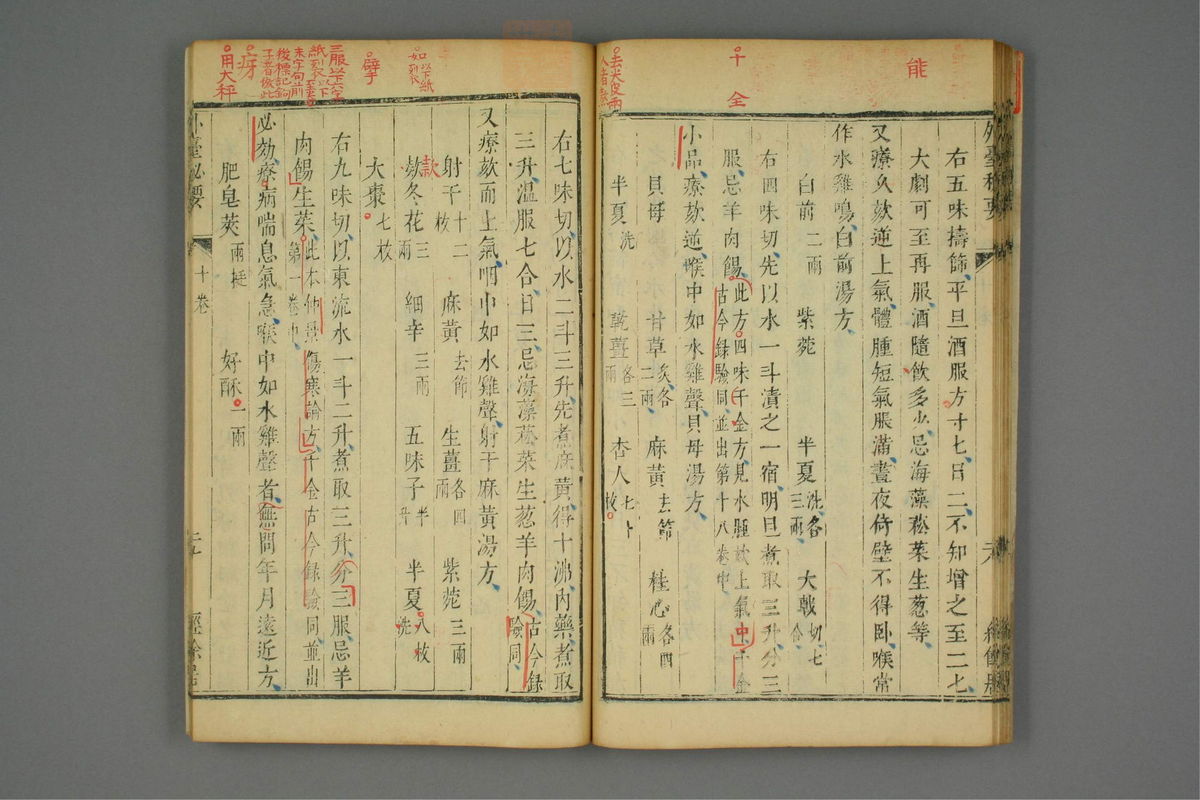 能
千
金
右五味擣篩平旦酒服方寸七日二不知增之至二七
大劇可至再服酒隨飲多少忌海藻菘菜生葱等
又療久欬逆上氣體腫短氣脹滿晝夜倚壁不得臥喉常
作水雞鳴白前湯方
白前二兩 紫菀 半夏洗各三兩 大戟切七合
右四味切先以水一斗漬之一宿明旦煮取三升分三
服忌羊肉餳此方四味千金方見水腫欬上氣中千金
古今録驗同並出第十八卷中
小品療欬逆喉中如水雞聲貝母湯方
貝母 甘草炙各二兩 麻黃去節 桂心各四兩
半夏洗 乾薑各三兩 杏人七十枚
右七味切以水二斗三升先煮麻黃得十沸內藥煮取
三升溫服七合日三忌海藻菘菜生葱羊肉餳古今録
驗同
又療欬而上氣咽中如水雞聲射干麻黃湯方
射干十二枚 麻黃去節 生薑各四兩 紫菀三兩
款
欵冬花三兩 細辛三兩 五味子半升 半夏八枚洗
大棗七枚
右九味切以東流水一斗二升煮取三升分三服忌羊
肉餳生菜此本仲景傷寒論方千金古今録驗同並出
第一卷中
必効療病喘息氣急喉中如水雞聲者無問年月遠近方
肥皂莢兩挺 好酥一兩
外臺祕要
十卷
如
以下紙
擘
三服以下六字
牙
用大秤